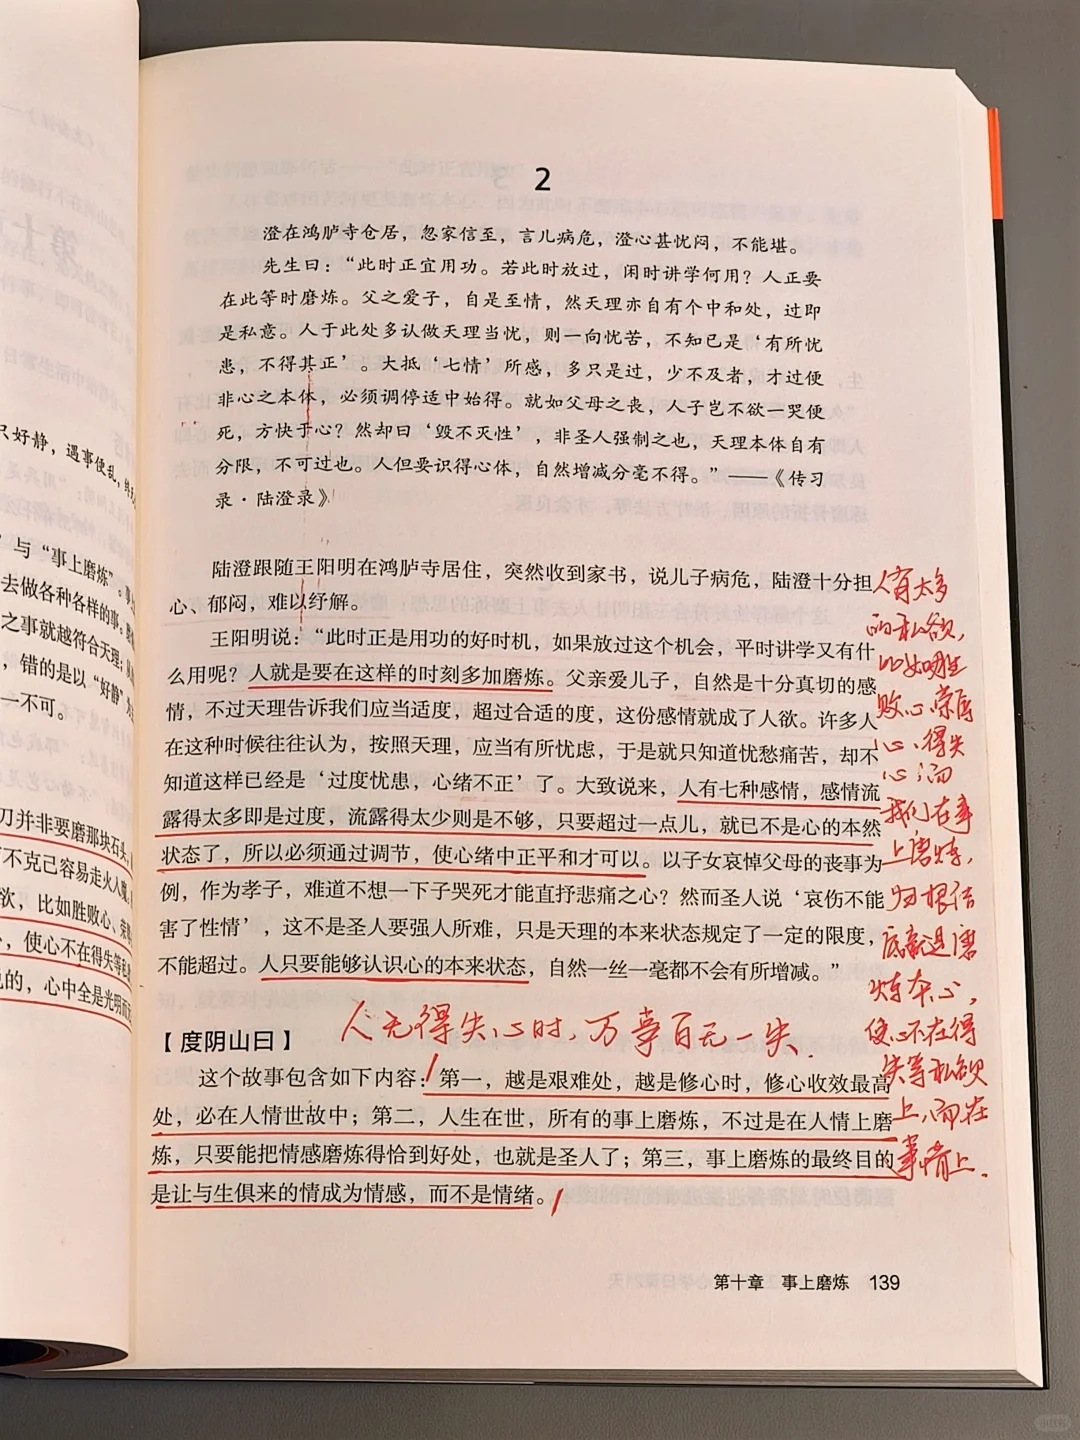 只好静，遇事便乱，终
”与“事上磨炼”。
去做各种各样的事。
之事就越符合天理；
，错的是以“好静”为
一不可。
刀并非要磨那块石头，
不克己容易走火入魔。
欲，比如胜败心、荣
，使心不在得失等私
说的，心中全是光明而
2
澄在鸿胪寺仓居，忽家信至，言儿病危，澄心甚忧闷，不能堪。
先生曰：“此时正宜用功。若此时放过，闲时讲学何用？人正要
在此等时磨炼。父之爱子，自是至情，然天理亦自有个中和处，过即
是私意。人于此处多认做天理当忧，则一向忧苦，不知已是‘有所忧
患，不得其正’。大抵‘七情’所感，多只是过，少不及者，才过便
非心之本体，必须调停适中始得。就如父母之丧，人子岂不欲一哭便
死，方快于心？然却曰‘毁不灭性’，非圣人强制之也，天理本体自有
分限，不可过也。人但要识得心体，自然增减分毫不得。”——《传习
录·陆澄录》
陆澄跟随王阳明在鸿胪寺居住，突然收到家书，说儿子病危，陆澄十分担
心、郁闷，难以纾解。
王阳明说：“此时正是用功的好时机，如果放过这个机会，平时讲学又有什
么用呢？人就是要在这样的时刻多加磨炼。父亲爱儿子，自然是十分真切的感
情，不过天理告诉我们应当适度，超过合适的度，这份感情就成了人欲。许多人
在这种时候往往认为，按照天理，应当有所忧虑，于是就只知道忧愁痛苦，却不
知道这样已经是‘过度忧患，心绪不正’了。大致说来，人有七种感情，感情流
露得太多即是过度，流露得太少则是不够，只要超过一点儿，就已不是心的本然
状态了，所以必须通过调节，使心绪中正平和才可以。以子女哀悼父母的丧事为
例，作为孝子，难道不想一下子哭死才能直抒悲痛之心？然而圣人说‘哀伤不能
害了性情’，这不是圣人要强人所难，只是天理的本来状态规定了一定的限度，
不能超过。人只要能够认识心的本来状态，自然一丝一毫都不会有所增减。”
人无得失心时，万事百无一失.
【度阴山曰】
这个故事包含如下内容：第一，越是艰难处，越是修心时，修心收效最高
处，必在人情世故中；第二，人生在世，所有的事上磨炼，不过是在人情上磨
炼，只要能把情感磨炼得恰到好处，也就是圣人了；第三，事上磨炼的最终目的
是让与生俱来的情成为情感，而不是情绪。
人有太多
的私欲，
比如
败心、荣辱
心、得失
心；而
我们在事
上磨炼，
归根结
底就是磨
炼本心，
使心不在得
失等私欲
上，而在
事情上.
第十章 事上磨炼 139
小红书